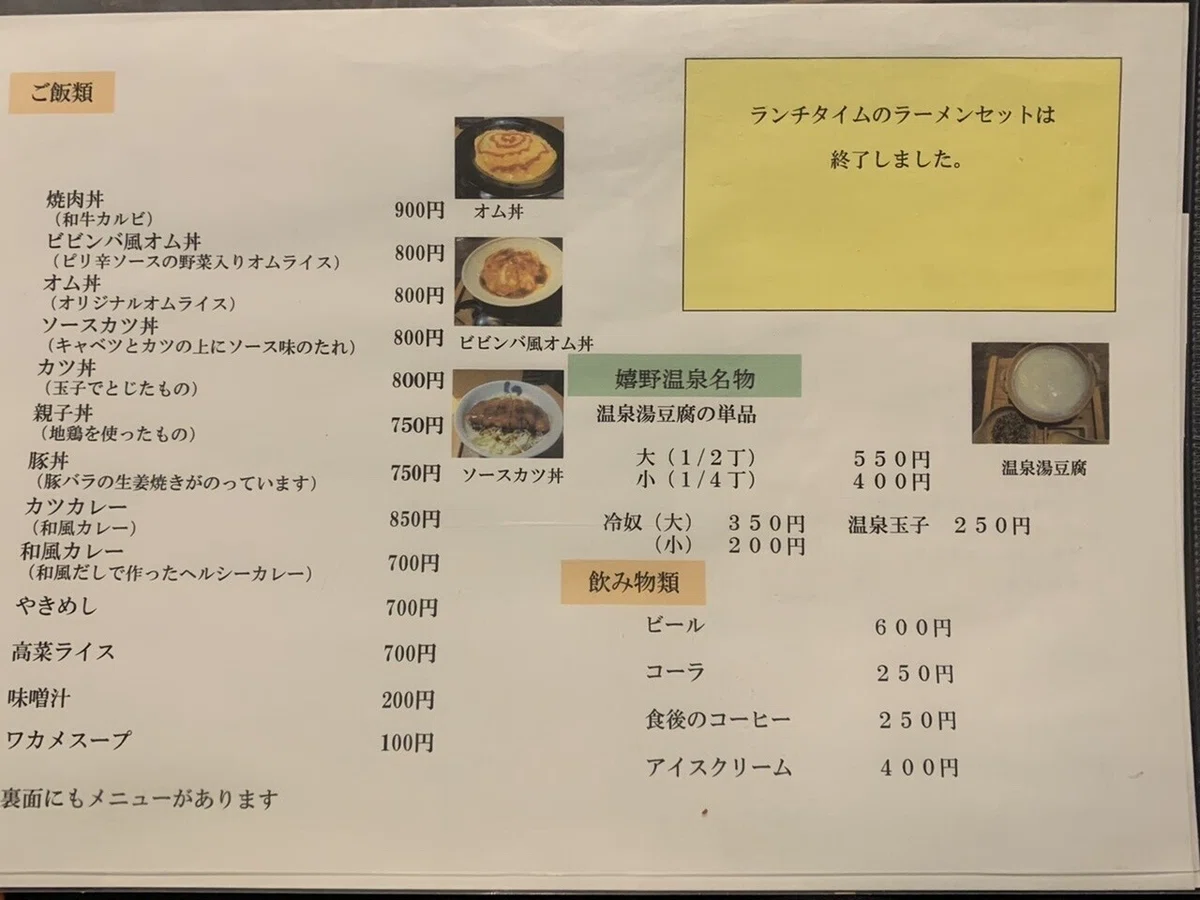 ご飯類
焼肉丼 900円
（和牛カルビ）
ビビンバ風オム丼 800円
（ピリ辛ソースの野菜入りオムライス）
オム丼 800円
（オリジナルオムライス）
ソースカツ丼 800円
（キャベツとカツの上にソース味のたれ）
カツ丼 800円
（玉子でとじたもの）
親子丼 750円
（地鶏を使ったもの）
豚丼 750円
（豚バラの生姜焼きがのっています）
カツカレー 850円
（和風カレー）
和風カレー 700円
（和風だしで作ったヘルシーカレー）
やきめし 700円
高菜ライス 700円
味噌汁 200円
ワカメスープ 100円
裏面にもメニューがあります
オム丼
ビビンバ風オム丼
ソースカツ丼
ランチタイムのラーメンセットは
終了しました。
嬉野温泉名物
温泉湯豆腐の単品
大（１/２丁） ５５０円
小（１/４丁） ４００円
温泉湯豆腐
冷奴（大） ３５０円 温泉玉子 ２５０円
（小） ２００円
飲み物類
ビール ６００円
コーラ ２５０円
食後のコーヒー ２５０円
アイスクリーム ４００円